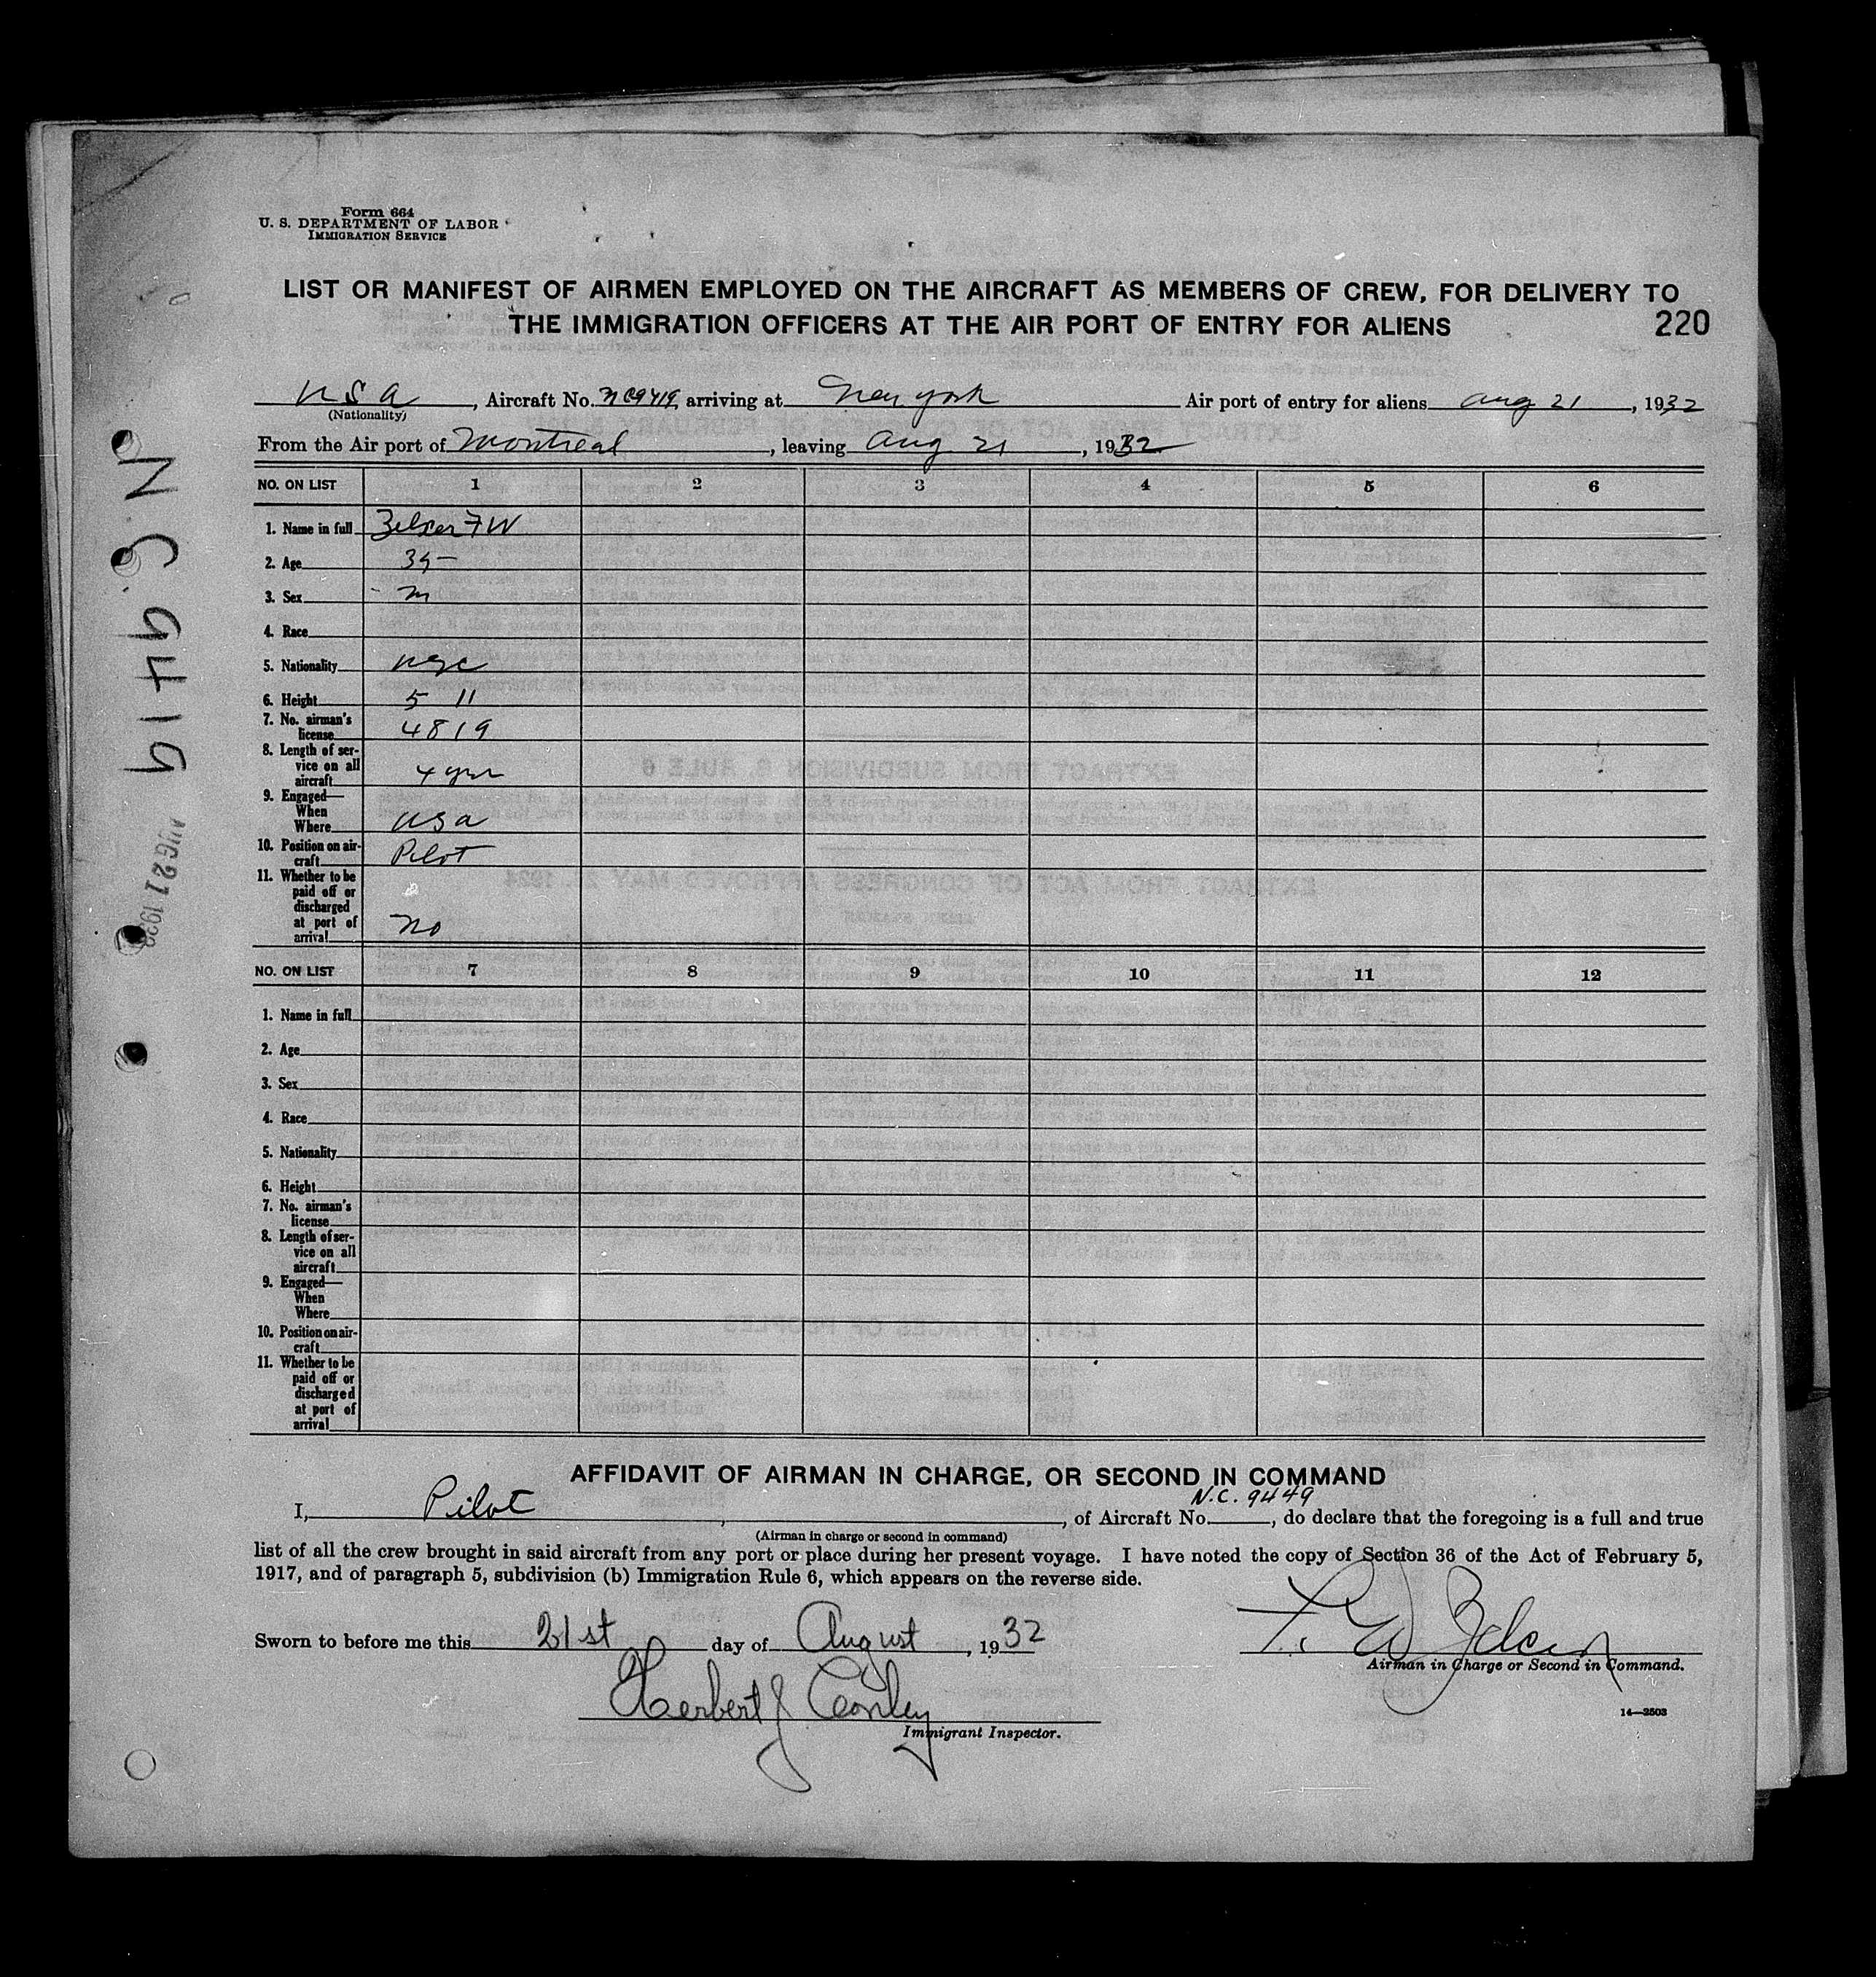 Form 664
U. S. DEPARTMENT OF LABOR
IMMIGRATION SERVICE
LIST OR MANIFEST OF AIRMEN EMPLOYED ON THE AIRCRAFT AS MEMBERS OF CREW, FOR DELIVERY TO
THE IMMIGRATION OFFICERS AT THE AIR PORT OF ENTRY FOR ALIENS
220
USA, Aircraft No. NC9419, arriving at New York Air port of entry for aliens Aug 21, 1932
(Nationality)
From the Air port of Montreal, leaving Aug 21, 1932
NO. ON LIST 1 2 3 4 5 6
1. Name in full F W
2. Age 35
3. Sex M
4. Race
5. Nationality
6. Height 5 11
7. No. airman's
license 4819
8. Length of ser-
vice on all
aircraft 4 yrs
9. Engaged—
When
Where USA
10. Position on air-
craft Pilot
11. Whether to be
paid off or
discharged
at port of
arrival No
NO. ON LIST 7 8 9 10 11 12
1. Name in full
2. Age
3. Sex
4. Race
5. Nationality
6. Height
7. No. airman's
license
8. Length of ser-
vice on all
aircraft
9. Engaged—
When
Where
10. Position on air-
craft
11. Whether to be
paid off or
discharged
at port of
arrival
AFFIDAVIT OF AIRMAN IN CHARGE, OR SECOND IN COMMAND
N.C. 9449
I, Pilot, , of Aircraft No. , do declare that the foregoing is a full and true
(Airman in charge or second in command)
list of all the crew brought in said aircraft from any port or place during her present voyage. I have noted the copy of Section 36 of the Act of February 5,
1917, and of paragraph 5, subdivision (b) Immigration Rule 6, which appears on the reverse side.
Sworn to before me this 21st day of August, 1932 F. W.
Airman in Charge or Second in Command.
Herbert J Conley
Immigrant Inspector.
14—2503
NC 9419
AUG 21 1932